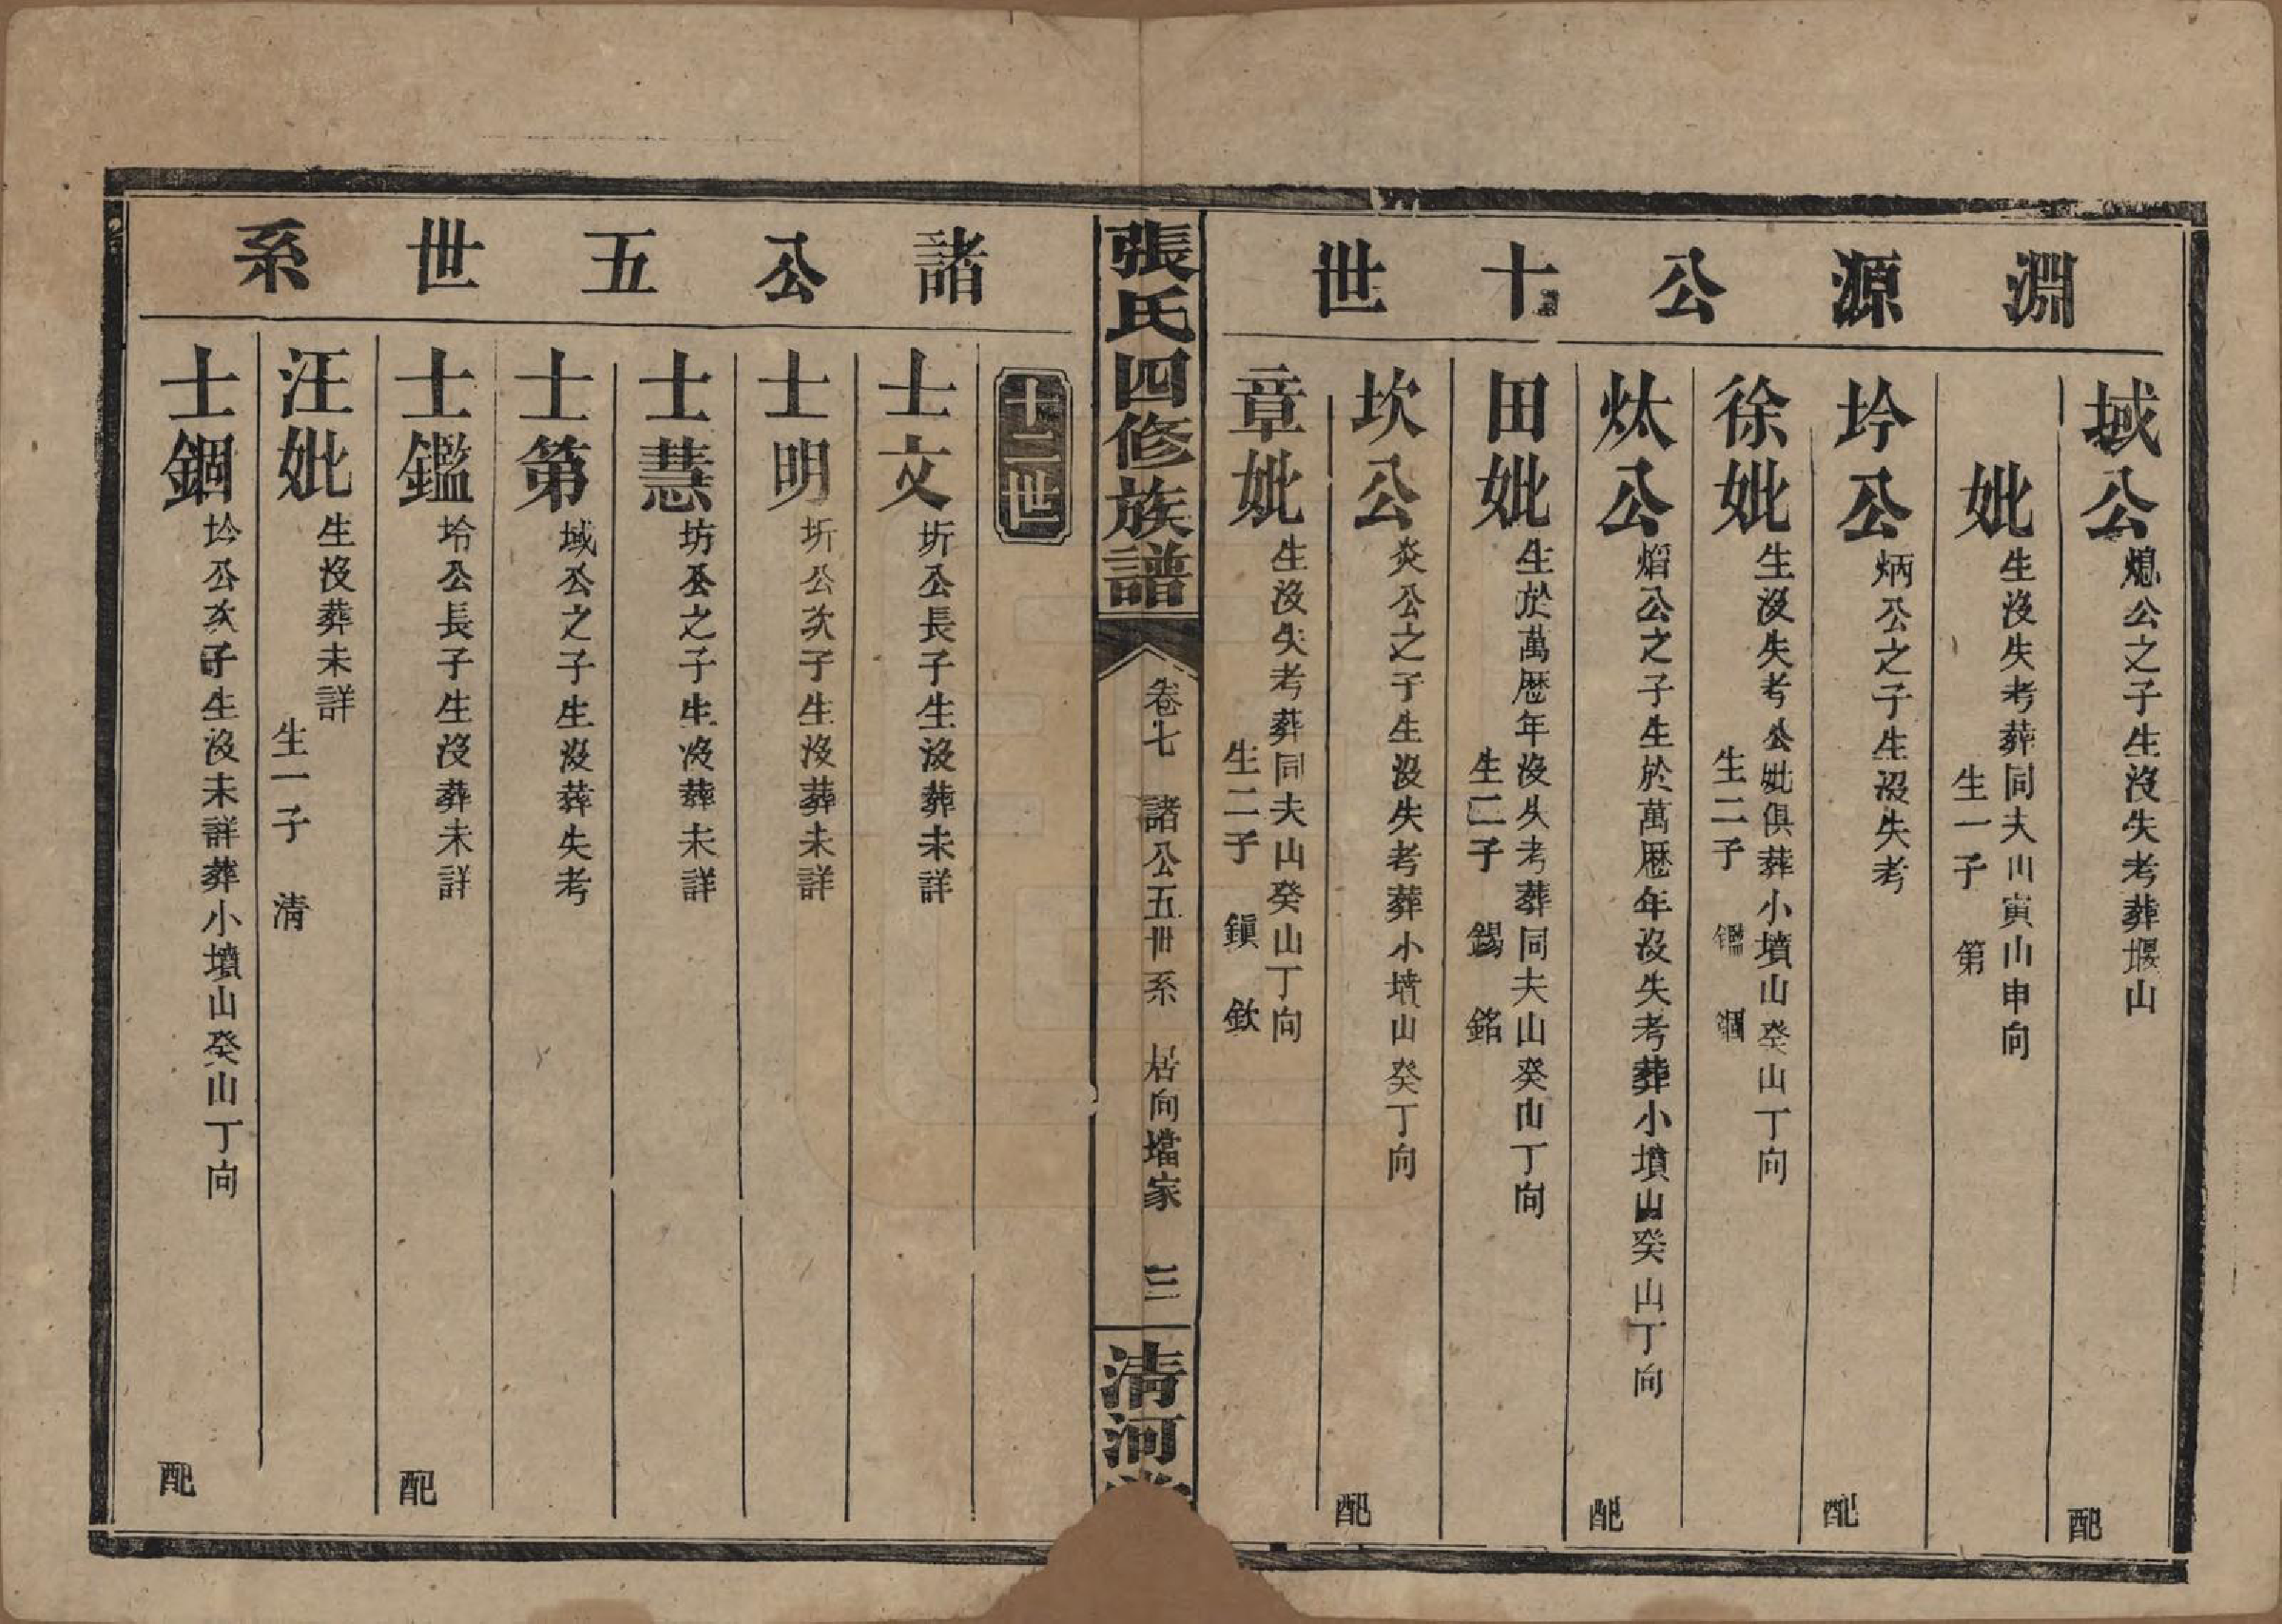 淵源公十世
域公 熄公之子生沒失考葬堰山 配
妣 生沒失考葬同夫山寅山申向 生一子 第
坽公 炳公之子生沒失考 配
徐妣 生沒失考公妣俱葬小墳山癸山丁向 生二子 鑑 錮
炏公 熖公之子生於萬歷年沒失考葬小墳山癸山丁向 配
田妣 生於萬歷年沒失考葬同夫山癸山丁向 生二子 錫 銘
坎公 炎公之子生沒失考葬小墳山癸丁向 配
章妣 生沒失考葬同夫山癸山丁向 生二子 鎭 欽
張氏四修族譜
卷七 諸公五世系 居向壋家 三
清河堂
諸公五世系
十二世
士文 圻公長子生沒葬未詳
士明 圻公次子生沒葬未詳
士慧 坊公之子生沒葬未詳
士第 域公之子生沒葬失考
士鑑 坽公長子生沒葬未詳 配
汪妣 生沒葬未詳 生一子 清
士錮 坽公次子生沒未詳葬小墳山癸山丁向 配